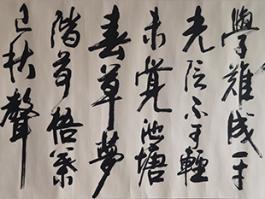 學難成一寸
光陰不可輕
未覺池塘
春草夢
階前梧葉
已秋聲